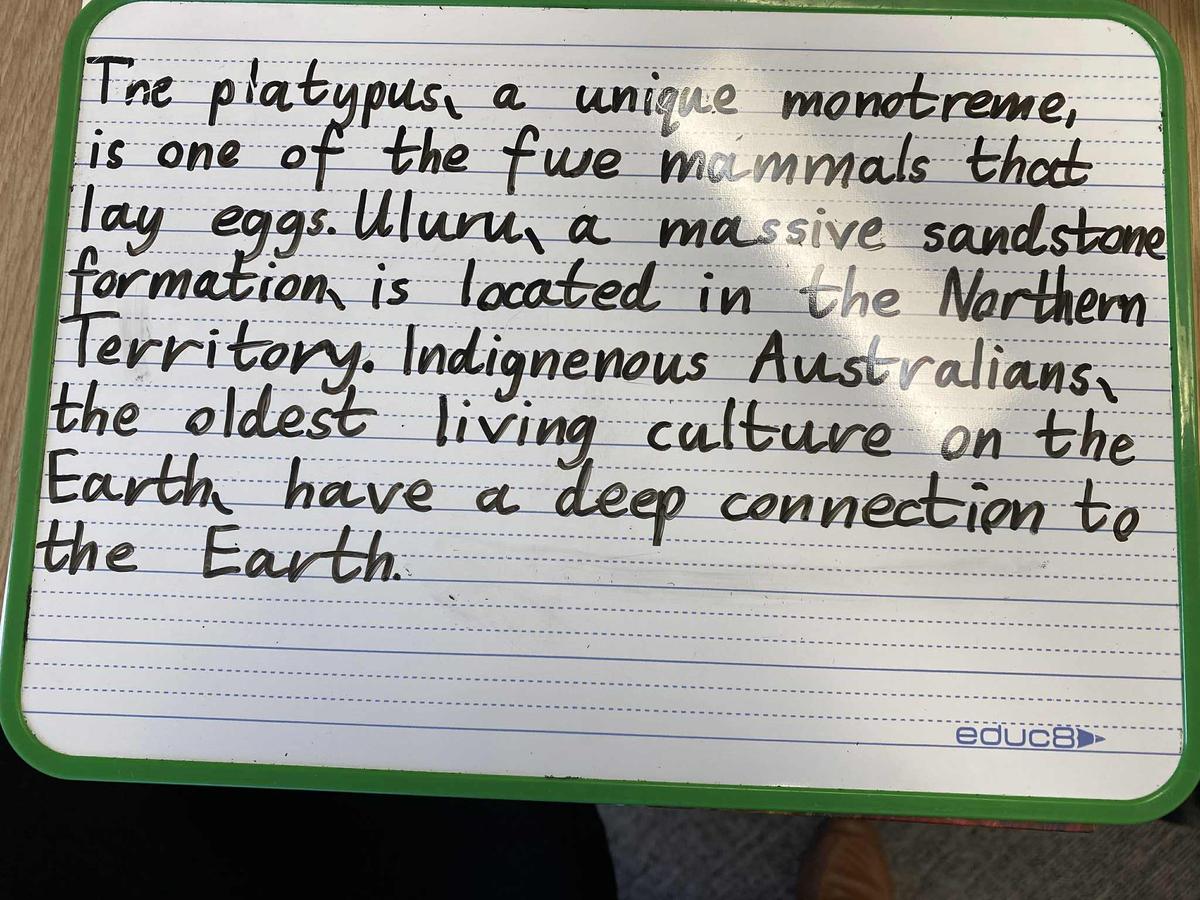 The platypus, a unique monotreme,
is one of the fwe mammals that
lay eggs. Uluru, a massive sandstone
formation, is located in the Northern
Territory. Indignenous Australians,
the oldest living culture on the
Earth, have a deep connection to
the Earth.
educ8